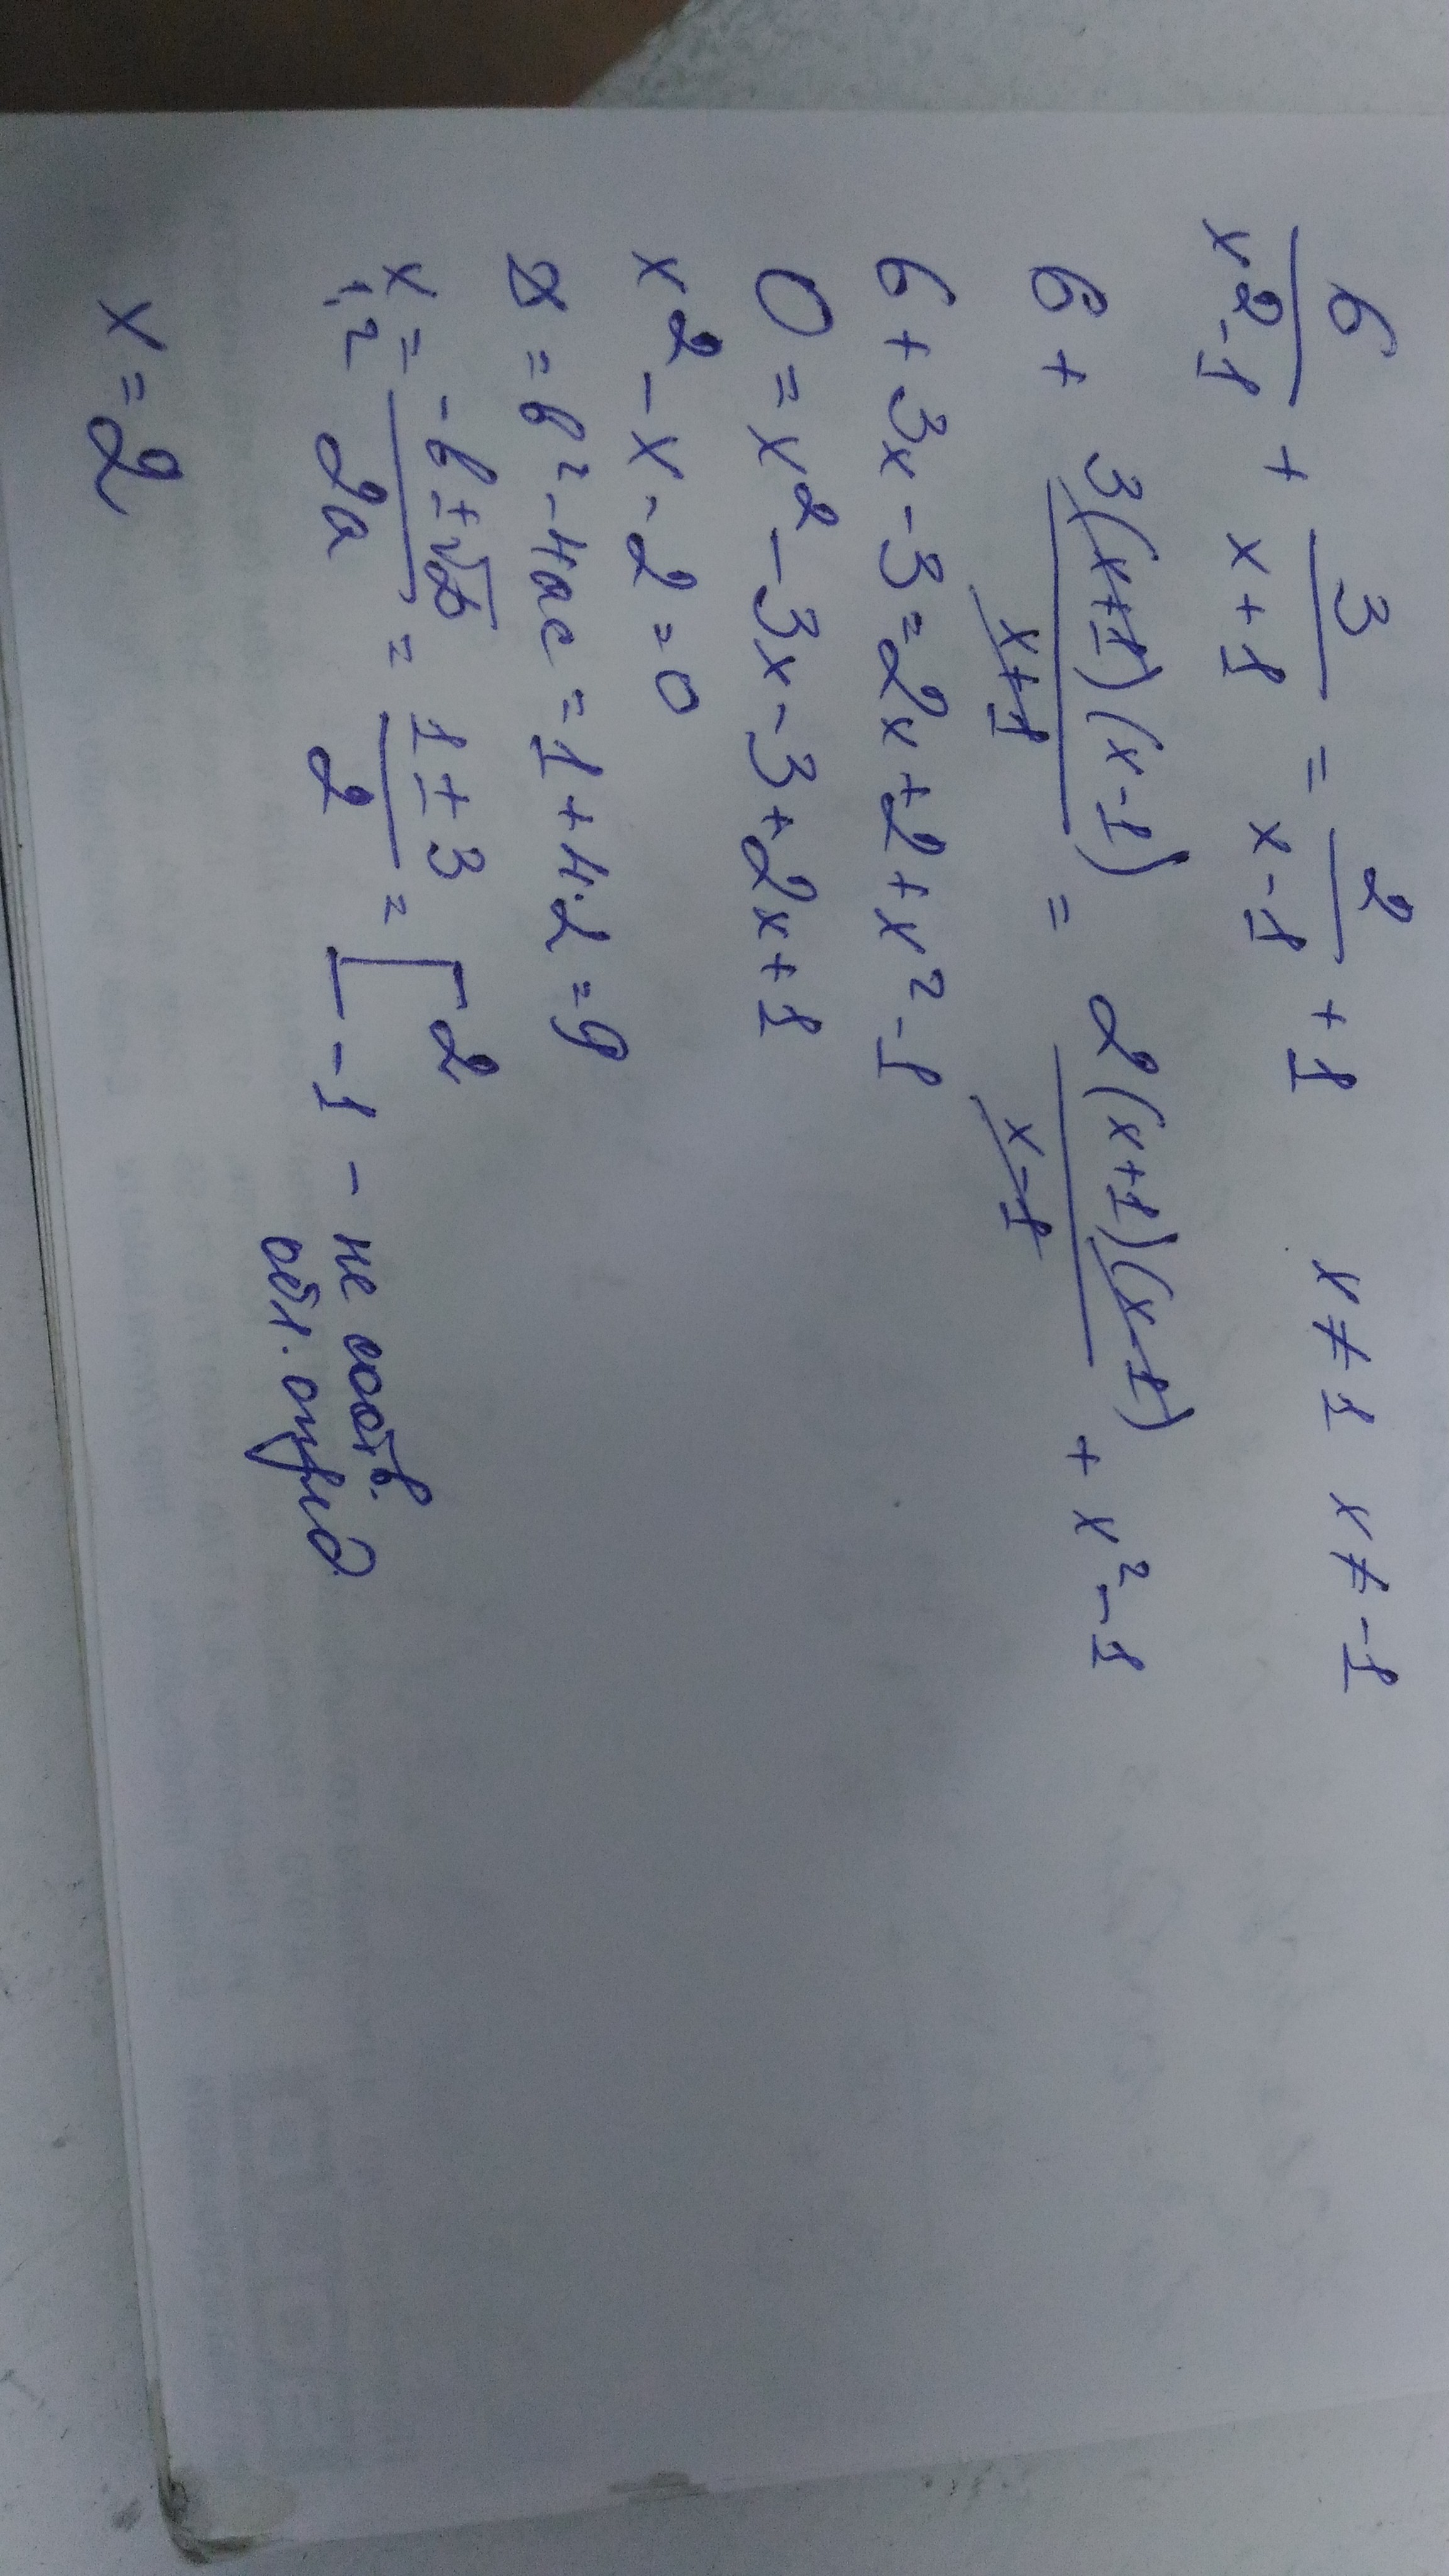 6/(x²-1) + 3/(x+1) = 2/(x-1) + 1 x≠1 x≠-1
6 + 3(x+1)(x-1)/(x+1) = 2(x+1)(x-1)/(x-1) + x²-1
6+3x-3=2x+2+x²-1
0=x²-3x-3+2x+1
x²-x-2=0
D=b²-4ac=1+4·2=9
x₁,₂=(-b±√D)/2a=(1±3)/2=[2
-1 - не соотв.
обл. опред.
x=2